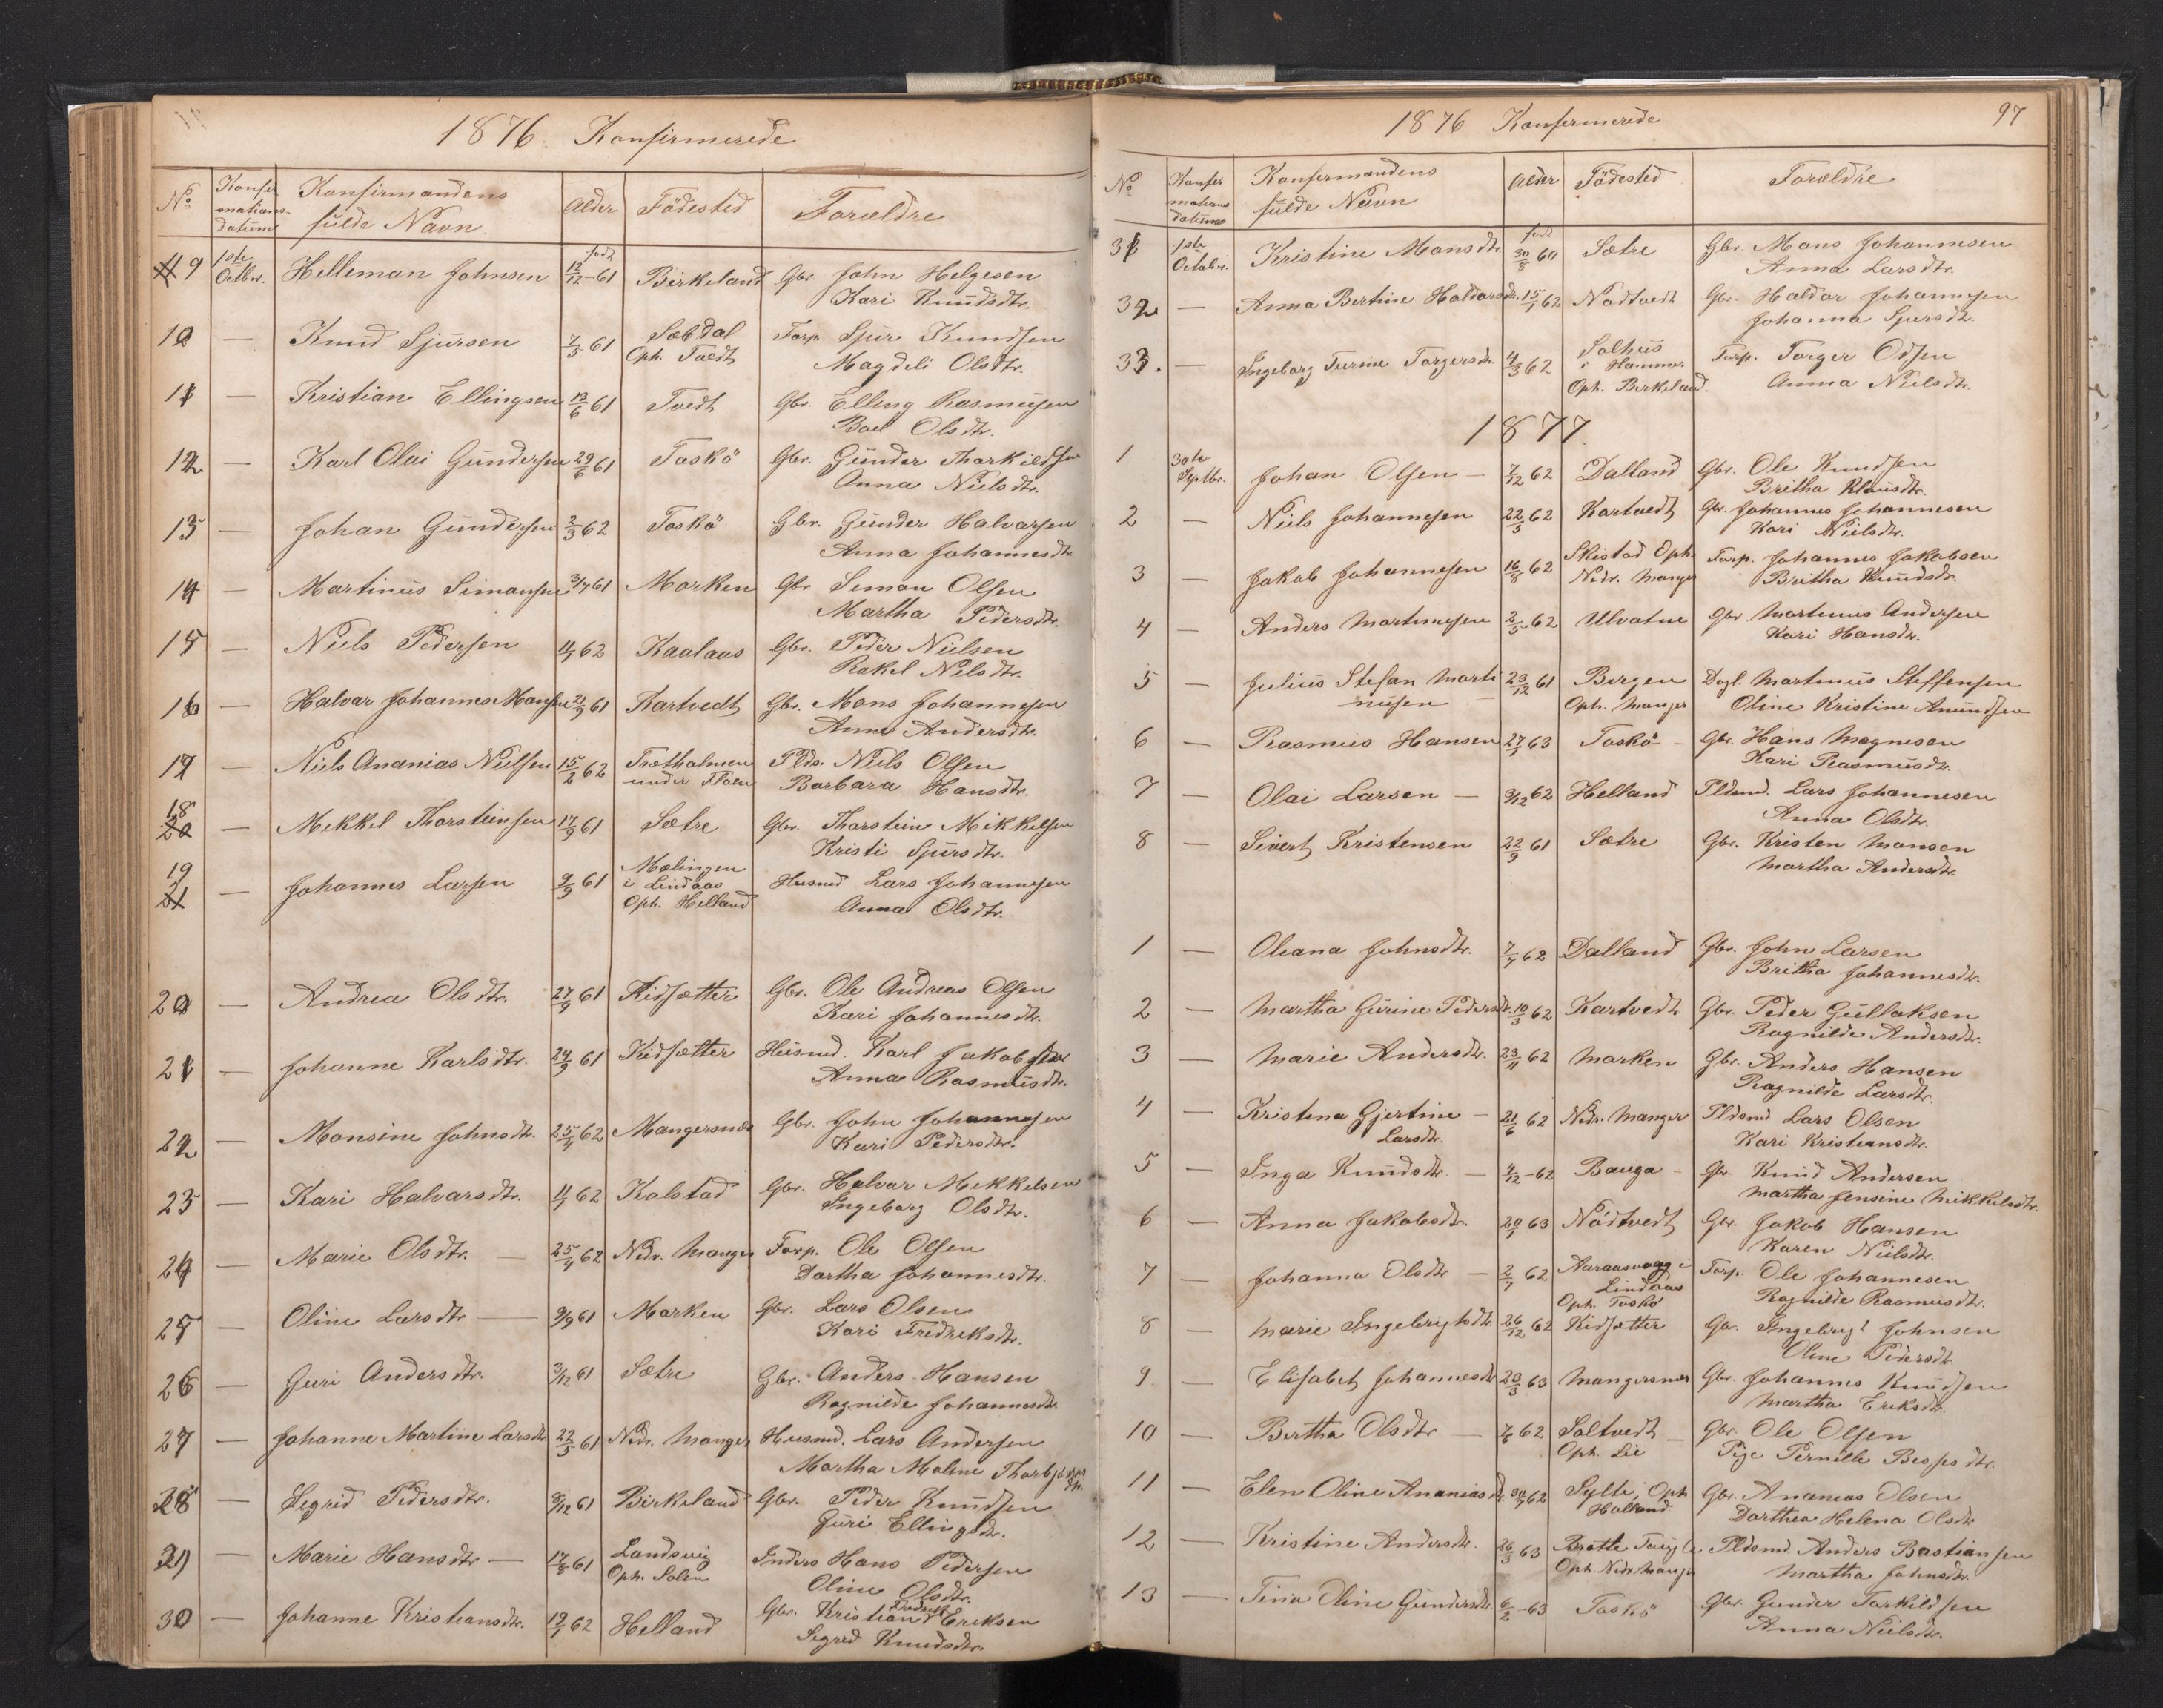 1876. Konfirmerede
No Konfirmations-datum Konfirmandens fulde Navn Alder Födested Forældre
9 1ste Octbr. Helleman Johnsen född 12/12-61 Birkeland Gbr John Helgesen
Kari Knudsdtr.
10 — Knud Sjursen 7/5 61 Sæbdal Oph. Tvedt Forp. Sjur Knudsen
Magdeli Olsdtr.
11 — Kristian Ellingsen 13/6 61 Tvedt Gbr. Elling Rasmusen
Boel Olsdtr.
12 — Karl Olai Gundersen 29/6 61 Toskö Gbr. Gunder Thorkildsen
Anna Nielsdtr.
13 — Johan Gundersen 2/3 62 Toskö Gbr. Gunder Halvorsen
Anna Johannesdtr.
14 — Martinus Simonsen 3/7 61 Morken Gbr Simon Olsen
Martha Pedersdtr.
15 — Niels Pedersen 11/1 62 Kaalaas Gbr. Peder Nielsen
Rakel Nilsdtr.
16 — Halvor Johannes Monsen 21/9 61 Kartvedt Gbr. Mons Johannesen
Anna Andersdtr.
17 — Niels Ananias Nielsen 15/2 62 Trætholmen under Floen Plds. Niels Olsen
Barbara Hansdtr.
18 — Mikkel Thorsteinsen 17/9 61 Sætre Gbr. Thorstein Mikkelsen
Kristi Sjursdtr.
19 — Johannes Larsen 9/9 61 Mælingen i Lindaas Oph. Helland Husmd Lars Johannesen
Anna Olsdtr.
20 — Andrea Olsdtr. 27/9 61 Kidsætter Gbr. Ole Andreas Olsen
Kari Johannesdtr.
21 — Johanne Karlsdtr. 24/9 61 Kidsætter Husmd. Karl Jakobsen
Anna Rasmusdtr.
22 — Monsine Johnsdtr. 25/4 62 Mangersnæs Gbr. John Johannesen
Kari Pedersdtr.
23 — Kari Halvorsdtr. 11/1 62 Kolstad Gbr. Halvor Mikkelsen
Ingeborg Olsdtr.
24 — Marie Olsdtr. — 25/4 62 Nedr. Manger Forp. Ole Olsen
Dortha Johannesdtr.
25 — Oline Larsdtr — 9/9 61 Morken Gbr. Lars Olsen
Kari Fredriksdtr.
26 — Guri Andersdtr. 3/12 61 Sætre Gbr. Anders Hansen
Ragnilde Johannesdtr.
27 — Johanne Martine Larsdtr. 22/5 61 Nedr. Manger Husmd. Lars Andersen
Martha Maline Thorbjörnsdtr.
28 — Segrid Pedersdtr. 8/12 61 Birkeland Gbr. Peder Knudsen
Guri Ellingsdtr.
29 — Marie Hansdtr — 17/8 61 Landsvig Oph. Solem Inders Hans Pedersen
Oline Olsdtr.
30 — Johanne Kristiansdtr. 19/1 62 Helland Gbr. Kristian Fredrik Eriksen
Segrid Knudsdtr.
1876 Konfirmerede 97
No Konfirmations datum Konfirmandens fulde Navn Alder Födested Forældre
31 1ste Octobr. Kristine Monsdtr. född 30/8 60 Sætre Gbr. Mons Johannesen
Anna Larsdtr.
32 — Anna Bertine Haldorsdtr. 15/1 62 Nödtvedt Gbr. Haldor Johannesen
Johanna Sjursdtr.
33. — Ingeborg Turine Torgersdtr. 4/3 62 Solhus i Hammer Oph. Birkeland Forp. Torger Odsen
Anna Nielsdtr.
1877.
1 30te Septbr. Johan Olsen — 7/12 62 Dalland Gbr. Ole Knudsen
Britha Klausdtr.
2 — Niels Johannesen 22/5 62 Kartvedt Gbr. Johannes Johannesen
Kari Nielsdtr.
3 — Jakob Johannesen 16/8 62 Skistad Oph. Nedr. Manger Forp. Johannes Jakobsen
Britha Knudsdtr.
4 — Anders Martinusen 2/5 62 Ulvatne Gbr Martinus Andersen
Kari Hansdtr.
5 — Julius Stefan Martinusen 23/12 61 Bergen Oph. Manger Dagl. Martinus Steffensen
Oline Kristine Amundsen
6 — Rasmus Hansen 27/1 63 Toskö — Gbr. Hans Magnesen
Kari Rasmusdtr.
7 — Olai Larsen — 9/12 62 Helland Pldsmd. Lars Johannesen
Anna Olsdtr.
8 — Sivert Kristensen 22/9 61 Sætre Gbr. Kristen Monsen
Martha Andersdtr.
1 — Oleana Johnsdtr. 7/7 62 Dalland Gbr. John Larsen
Britha Johannesdtr.
2 — Martha Gurine Pedersdtr. 10/3 62 Kartvedt Gbr. Peder Gullaksen
Ragnilde Andersdtr.
3 — Marie Andersdtr. 23/11 62 Marken Gbr. Anders Hansen
Ragnilde Larsdtr.
4 — Kristina Gjertine Larsdtr. — 21/6 62 Nedr. Manger Pldsmd Lars Olsen
Kari Kristiansdtr.
5 — Inga Knudsdtr. — 4/12-62 Bauga — Gbr. Knud Andersen
Martha Jensine Mikkelsdtr.
6 — Anna Jakobsdtr. 29/1 63 Nödtvedt Gbr. Jakob Hansen
Karen Nielsdtr.
7 — Johanna Olsdtr — 2/7 62 Aaraasvaag i Lindaas Oph. Toskö Forp. Ole Johannesen
Ragnilde Rasmusdtr.
8 — Marie Ingebrigtsdtr. 26/12 62 Kidsætter Gbr. Ingebrigt Johnsen
Oline Pedersdtr.
9 — Elisabet Johannesdtr 23/3 63 Mangersnæs Gbr. Johannes Knudsen
Martha Eriksdtr.
10 — Bertha Olsdtr — 7/6 62 Soltvedt Oph. Lie Gbr. Ole Olsen
Pige Pernille Bespsdtr.
11 — Elen Oline Ananiasdtr. 30/7 62 Sylte, Oph Halland Gbr. Ananias Olsen
Dorthea Helena Olsdtr
12 — Kristine Andersdtr. 26/3 63 Oph. Nedr Manger Pldsmd. Anders Bastiansen
Martha Johnsdtr.
13 — Tina Oline Gundersdtr 6/2-63 Toskö Gbr. Gunder Torkildsen
Anna Nielsdtr.